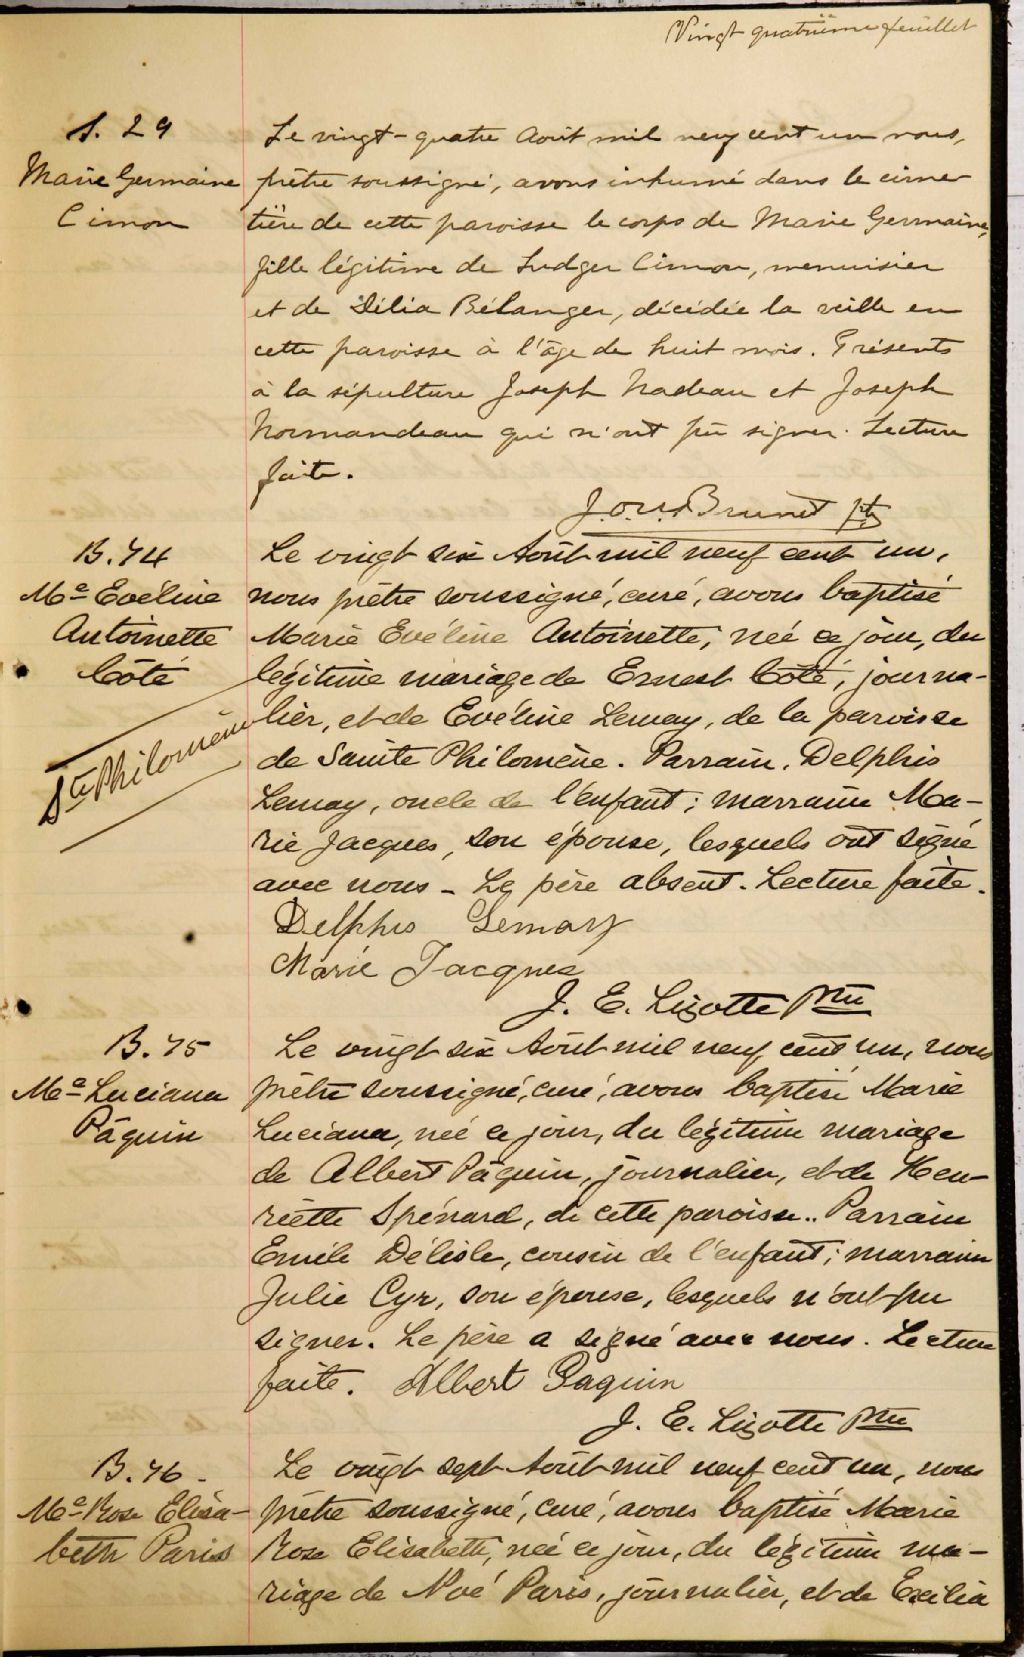 Vingt quatrième feuillet
S. 29
Marie Germaine
Cimon
Le vingt-quatre Août mil neuf cent un nous,
prêtre soussigné, avons inhumé dans le cime-
tière de cette paroisse le corps de Marie Germaine,
fille légitime de Ludger Cimon, menuisier
et de Délia Bélanger, décédée la veille en
cette paroisse à l'âge de huit mois. Présents
à la sépulture Joseph Nadeau et Joseph
Normandeau qui n'ont pu signer. Lecture
faite.
Brunet ptre
B. 74
Me Evéline
Antoinette
Côté
Ste Philomène
Le vingt six Août mil neuf cent un,
nous prêtre soussigné, curé, avons baptisé
Marie Evéline Antoinette, née ce jour, du
légitime mariage de Ernest Côté, journa-
lier, et de Evéline Lemay, de la paroisse
de Sainte Philomène. Parrain, Delphis
Lemay, oncle de l'enfant; marraine Ma-
rie Jacques, son épouse, lesquels ont signé
avec nous - Le père absent. Lecture faite.
Delphis Lemay
Marie Jacques
J. E. Lizotte Ptre
B. 75
Me Luciana
Pâquin
Le vingt six Août mil neuf cent un, nous
prêtre soussigné, curé, avons baptisé Marie
Luciana, née ce jour, du légitime mariage
de Albert Pâquin, journalier, et de Hen-
riette Spénard, de cette paroisse.. Parrain
Emile Délisle, cousin de l'enfant; marraine
Julie Cyr, son épouse, lesquels n'ont pu
signer. Le père a signé avec nous. Lecture
faite. Albert Paquin
J. E. Lizotte Ptre
B. 76.
Me Rose Elisa-
beth Paris
Le vingt sept Août mil neuf cent un, nous
prêtre soussigné, curé, avons baptisé Marie
Rose Elisabeth, née ce jour, du légitime ma-
riage de Noé Paris, journalier, et de Exilia